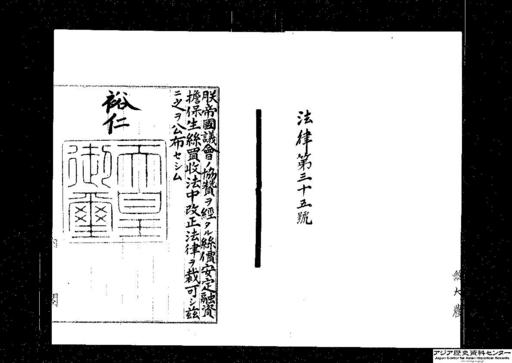 法律第三十五號
朕帝國議會ノ協贊ヲ經タル絲價安定融資
擔保生絲買收法中改正法律ヲ裁可シ茲
ニ之ヲ公布セシム
裕仁
天皇
御璽
アジア歴史資料センター
Japan Center for Asian Historical Records